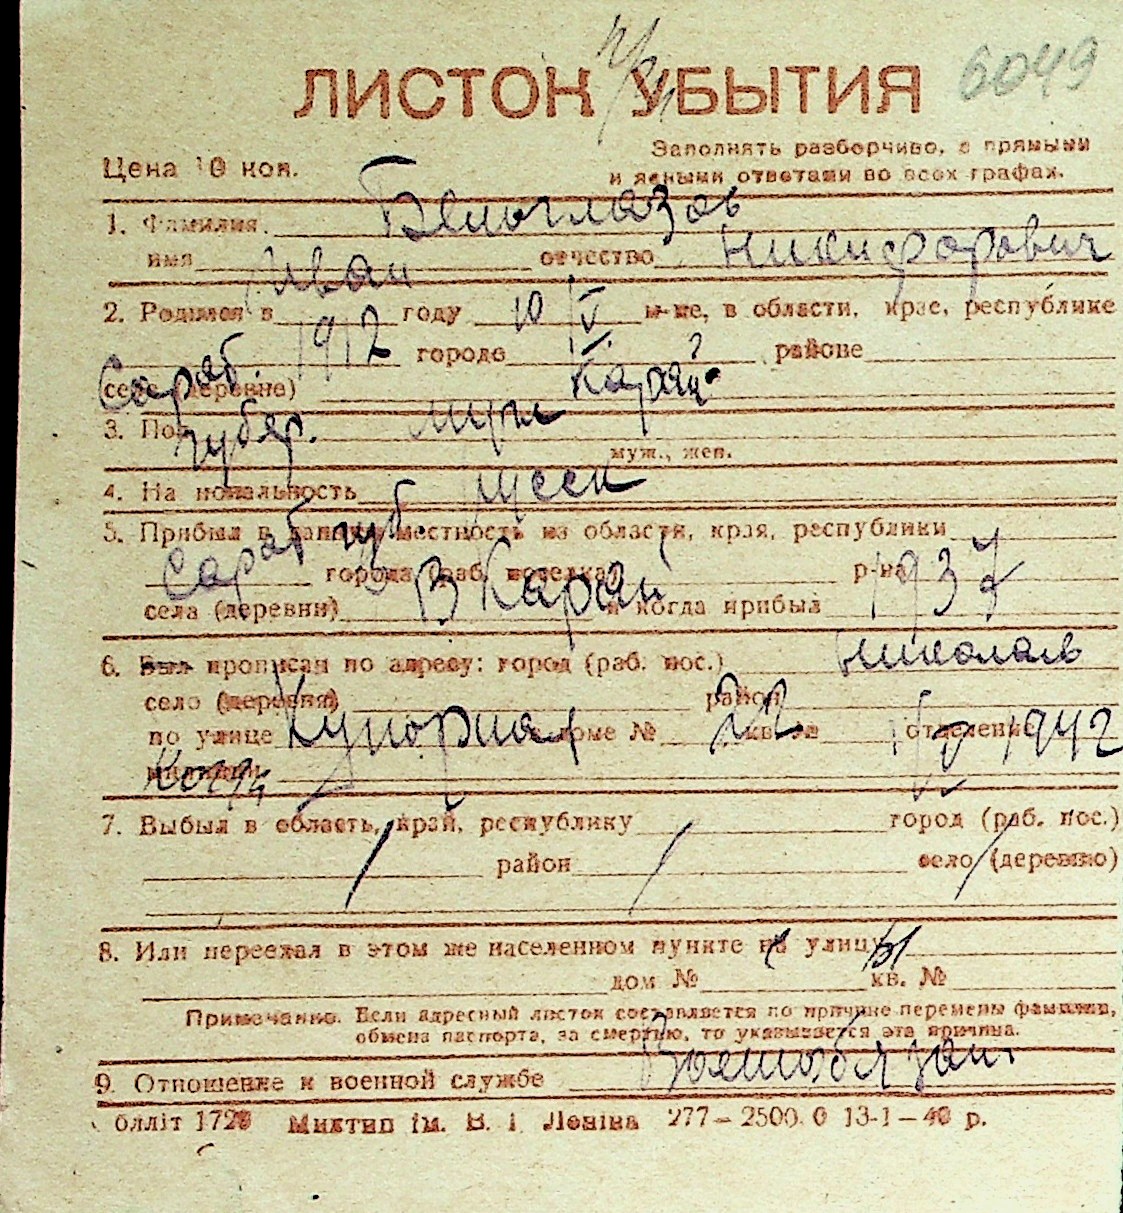 6049
ЛИСТОК УБЫТИЯ
Цена 10 коп.
Заполнять разборчиво, с прямыми
и ясными ответами во всех графах.
1. Фамилия Белоглазов
имя Иван отчество Никифорович
2. Родился в 1912 году 10/V м-це, в области, крае, республике
Сарат. губер. городе районе
селе (деревне) Карай
3. Пол муж
муж., жен.
4. Национальность русск
5. Прибыл в данную местность из области, края, республики
Сарат губ. города (раб. поселка) р-на
села (деревни) В Карай и когда прибыл 1937
6. Был прописан по адресу: город (раб. пос.) Николаев
село (деревня) район
по улице доме № 22 кв. № отделение 1942
милиции
7. Выбыл в область, край, республику город (раб. пос.)
район село (деревню)
8. Или переехал в этом же населенном пункте на улицу
дом № кв. №
Примечание. Если адресный листок составляется по причине перемены фамилии,
обмена паспорта, за смертью, то указывается эта причина.
9. Отношение к военной службе Военнообязан.
олліт 1729 Миктип ім. В. І. Леніна 277–2500.0 13-1–40 р.